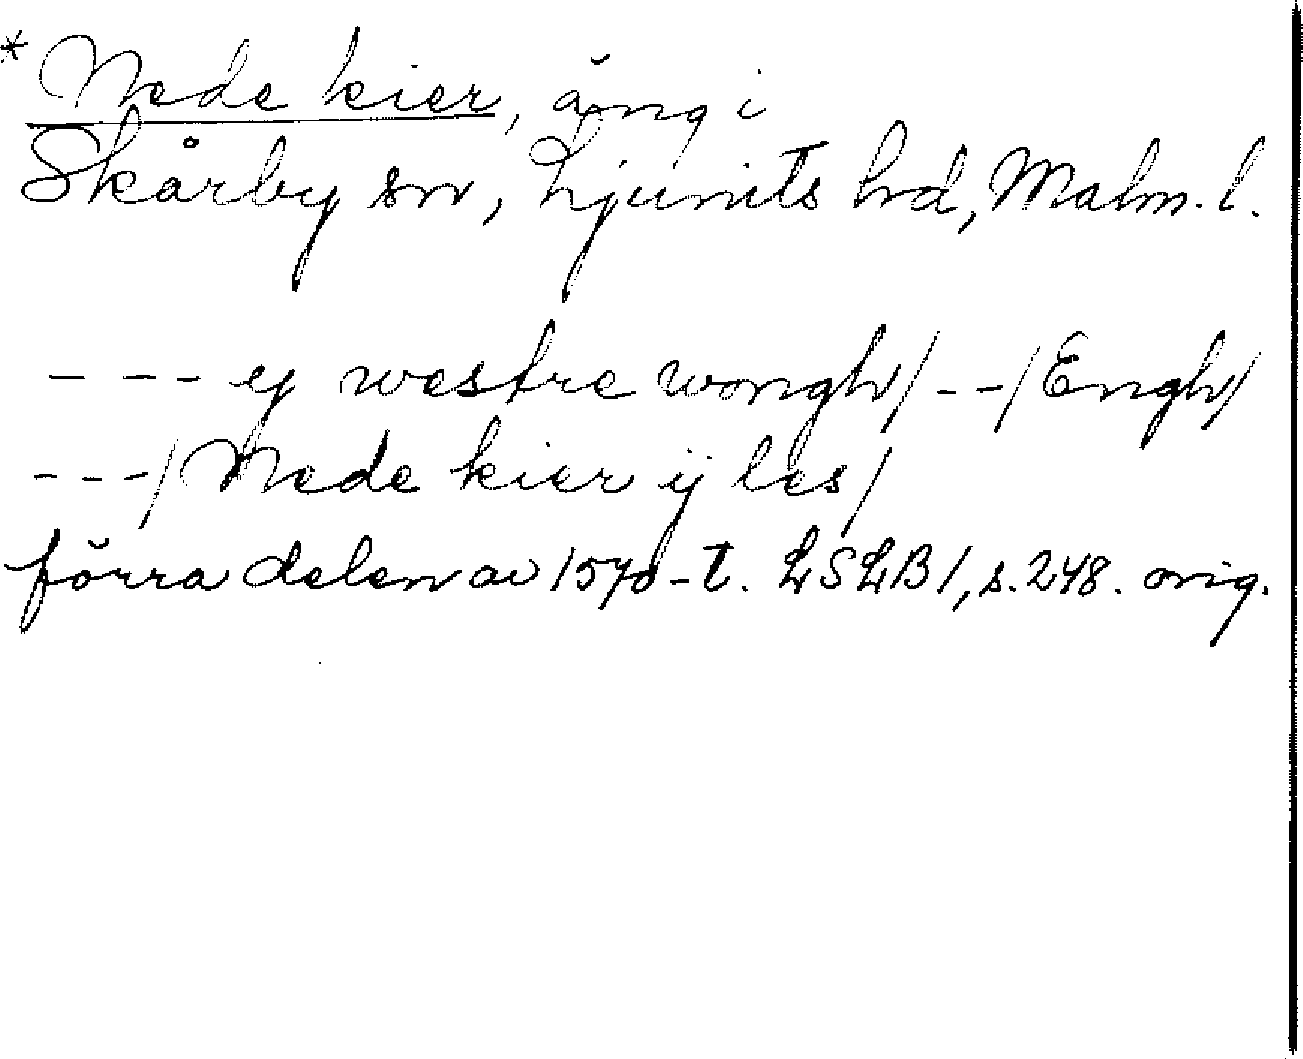 * Nede kier, äng i
Skårby sn, Ljunits hd, Malm. l.
- - - ey westre wongh/ - - / Engh/
- - - / Nede kier ij les/
förra delen av 1570-t. LSLB 1, s. 248. orig.